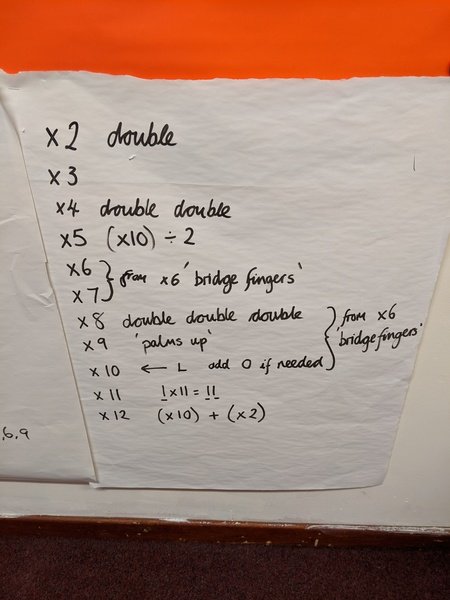 x2 double
x3
x4 double double
x5 (x10) ÷ 2
x6
x7 } from x6 'bridge fingers'
x8 double double double
x9 'palms up'
x10 ← L add 0 if needed
} from x6
'bridge fingers'
x11 1x11 = 11
x12 (x10) + (x2)
,6,9